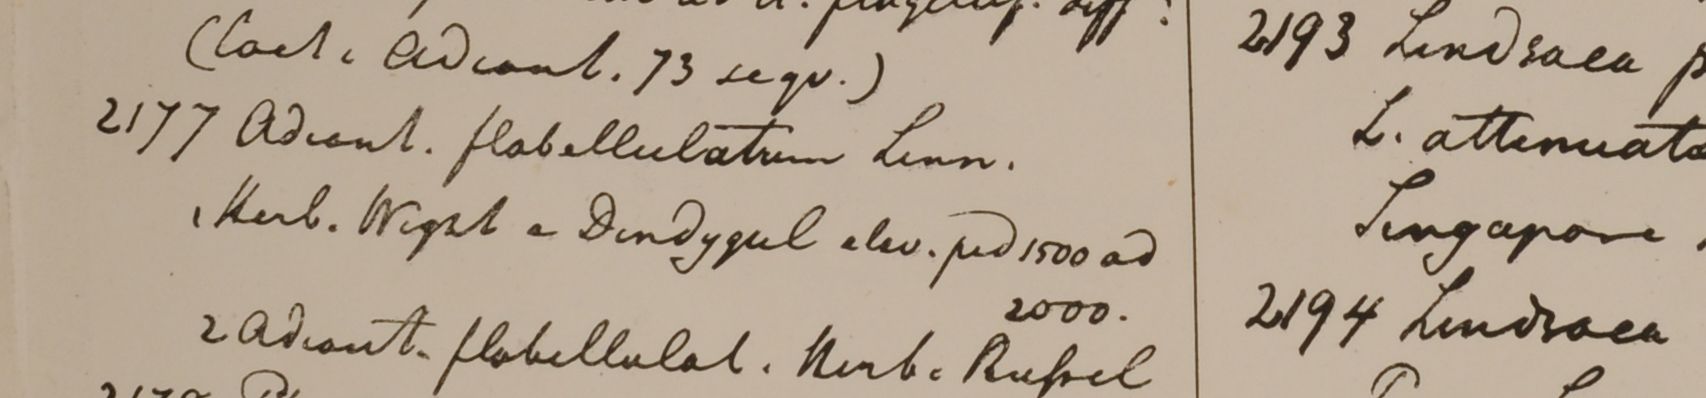 (Caet. Adiant. 73 seqv.)
2177 Adiant. flabellulatum Linn.
1 Herb. Wight e Dindygul elev. ped 1500 ad
2000.
2 Adiant. flabellulat. Herb. Russel
2193 Lindsaea
L. attenuata
Singapore
2194 Lindsaea